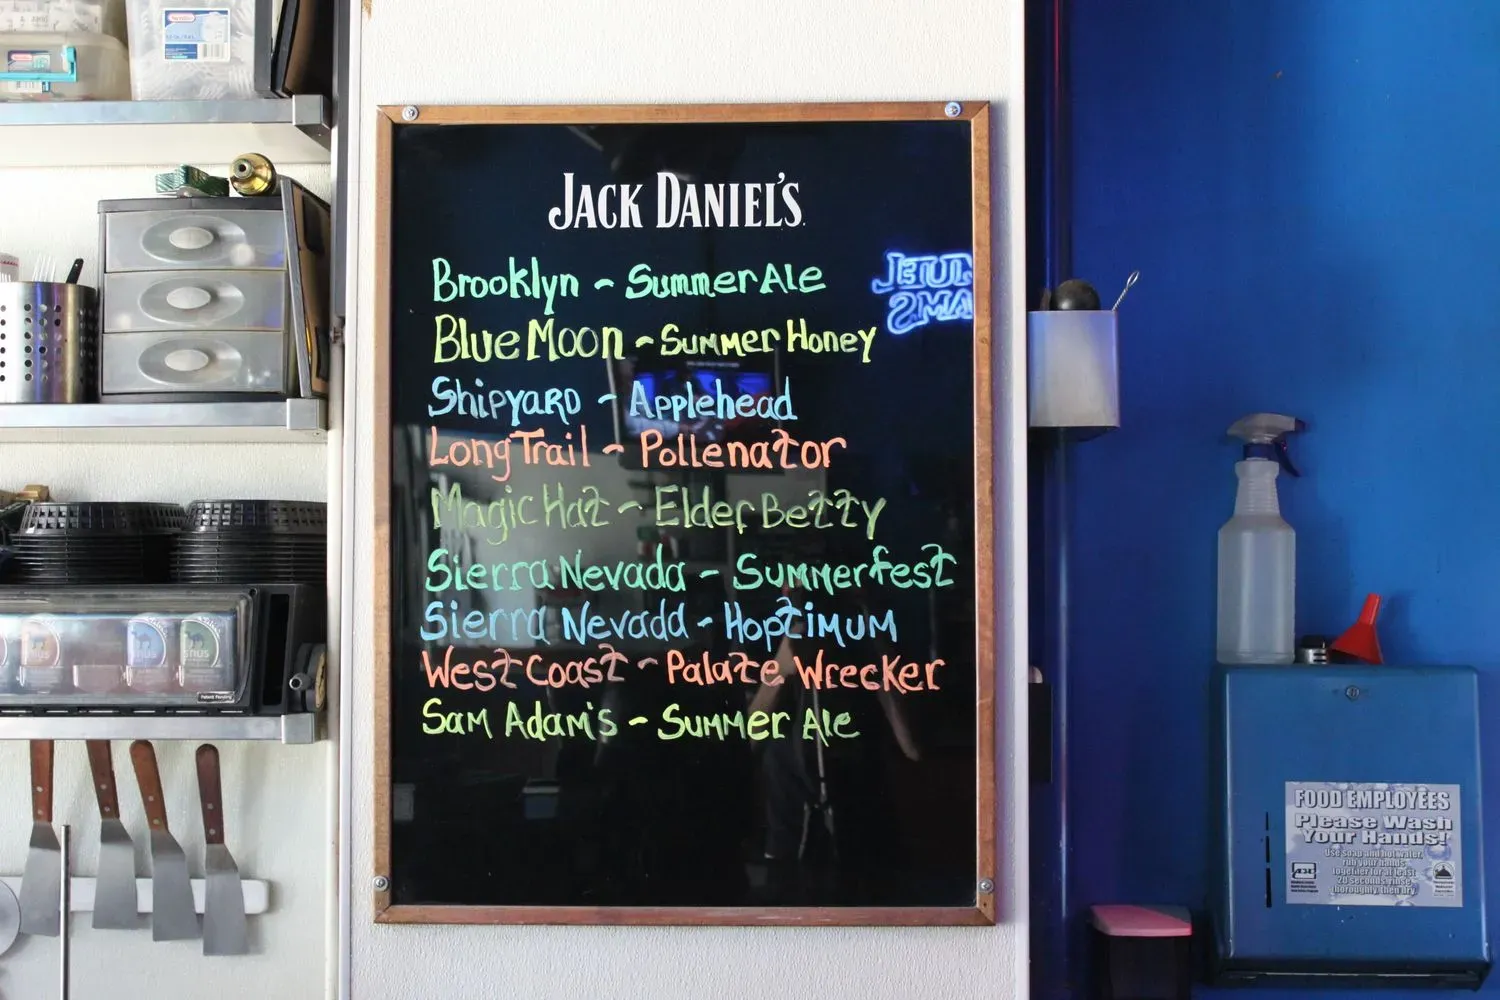 JACK DANIEL'S
Brooklyn ~ Summer Ale
Blue Moon ~ Summer Honey
Shipyard ~ Applehead
Long Trail ~ Pollenator
Magic Hat ~ Elder Betty
Sierra Nevada ~ Summerfest
Sierra Nevada ~ Hoptimum
West Coast ~ Palate Wrecker
Sam Adam's ~ Summer Ale
FOOD EMPLOYEES
Please Wash
Your Hands!
Use soap and hot water,
rub your hands
together for at least
20 seconds, rinse
thoroughly, then dry
snus
Patent Pending